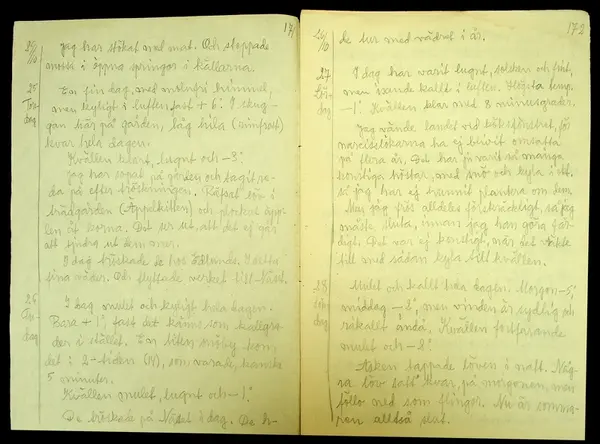 171
24/10
Jag har stökat med mat. Och stoppade
mossa i öppna springor i källarna.
25
Tors-
dag
En fin dag, med molnfri himmel,
men kyligt i luften, fast + 6°. I skug-
gan här på gården, låg hela (rimfrost)
kvar hela dagen.
Kvällen klart, lugnt och -3°.
Jag har sopat på gården och tagit re-
da på efter tröskningen. Räfsat löv i
trädgården (Äppelkitten) och plockat äpp-
len åt korna. Det ser ut, att det ej går
att tjudra ut dem mer.
I dag tröskade de hos Ödlunds. I detta
fina väder. Och flyttade verket till Näset.
26
Fre-
dag
I dag mulet och kyligt hela dagen.
Bara + 1°, fast det känns som kallgra-
der i stället. En liten snöby kom
det i 2-tiden (14), som varade kanske
5 minuter.
Kvällen mulet, lugnt och -1°.
De tröskade på Näset i dag. De h-
172
26/10
de tur med vädret i år.
27
Lör-
dag
I dag har varit lugnt, solsken och fint,
men svinde kallt i luften. Högsta temp.
-1°. Kvällen klar med 8 minusgrader.
Jag vände landet vid köksfönstret, för
narcisslökarna ha ej blivit omsatta
på flera år. Det har ju varit så många
konstiga höstar, med snö och kyla i ett.
så jag har ej hunnit plantera om dem.
Men jag frös alldeles förskräckligt, så jag
måste sluta, innan jag han göra fär-
digt. Det var ej konstigt, när det ökte
till med sådan kyla till kvällen.
28
Sön-
dag
Mulet och kallt hela dagen. Morgon -5°,
middag -2°, men vinden är sydlig och
råkallt ändå. Kvällen fortfarande
mulet och -2°.
Asken tappade löven i natt. Någ-
ra löv satt kvar, på morgonen, men
föllo ned som flingor. Nu är somma-
ren alltså slut.